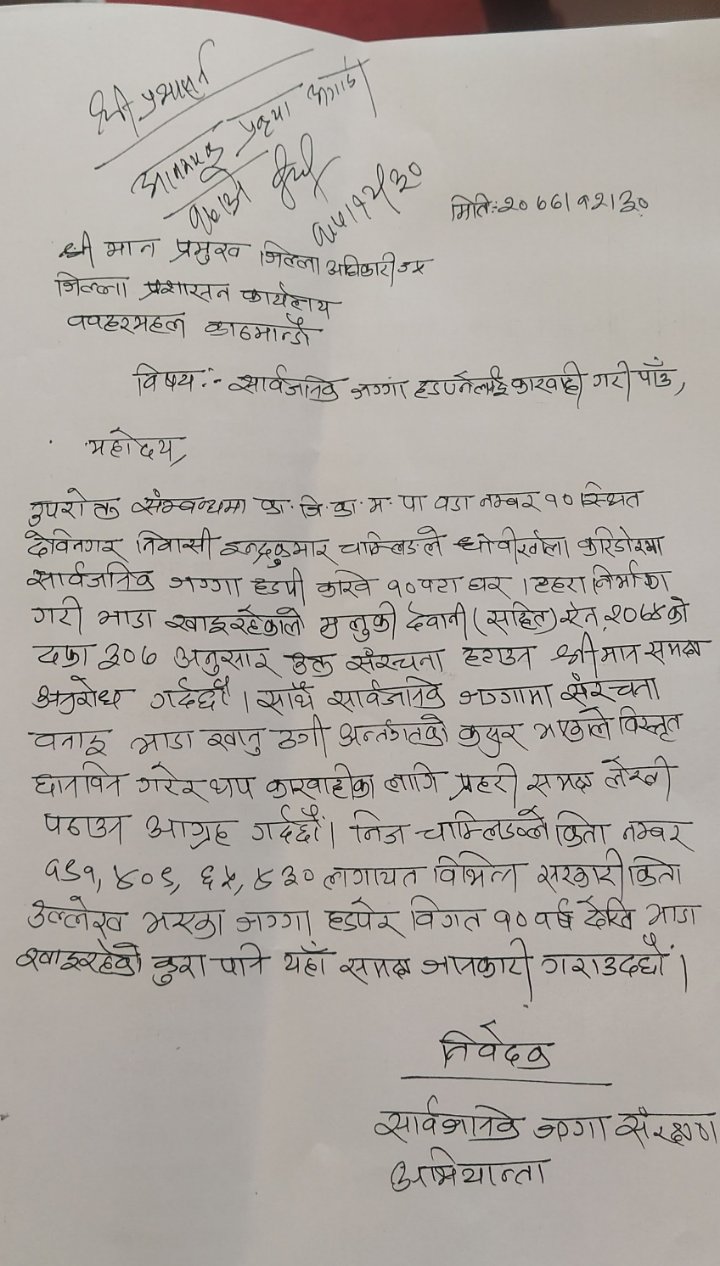 श्री प्रशासन
आवश्यक प्रकृया अगाडी
मिति:-२०७७।१२।३०
श्री मान प्रमुख जिल्ला अधिकारी ज्यू
जिल्ला प्रशासन कार्यलाय
ववहरमहल काठमान्डौ
विषय :- सार्वजानिक जग्गा हडप्नेलाई कारवाही गरी पाँउ,
महोदय,
उपरोक्त संम्वन्धमा का. जि. का. म. पा वडा नम्बर १० स्थित
देविनगर निवासी इन्द्रकुमार चाम्लिङले धोवीखोला करिडोरमा
सार्वजानिक जग्गा हडपी करिव १० वटा घर । टहरा निर्माण
गरी भाडा खाइरहेकाले मुलुकी देवानी (सहित) ऐन २०७४ को
दफा ३०७ अनुसार उक्त संरचना हटाउन श्रीमान समक्ष
अनुरोध गर्दर्छौ । साथै सार्वजानिक जग्गामा संरचना
वनाइ भाडा खानु ठगी अर्न्तगतको कसुर भएकाले विस्तृत
छानविन गरेर थप कारवाहीका लागि प्रहरी समक्ष लेखी
पठाउन आग्रह गर्दर्छौ । निज चाम्लिङले कित्ता नम्बर
लगायत विभिन्न सरकारी कित्ता
उल्लेख भएका जग्गा हडपेर विगत १० वर्ष देखि भाडा
खाइरहेको कुरा पनि यहाँ समक्ष जानकारी गराउदर्छौ ।
निवेदक
सार्वजानिक जग्गा संरक्षण
अभियान्ता